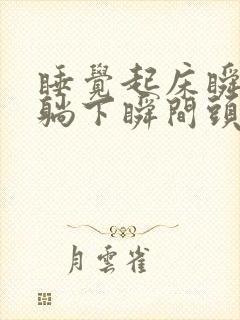 睡覺起床瞬
躺下瞬間頭
月雲雀